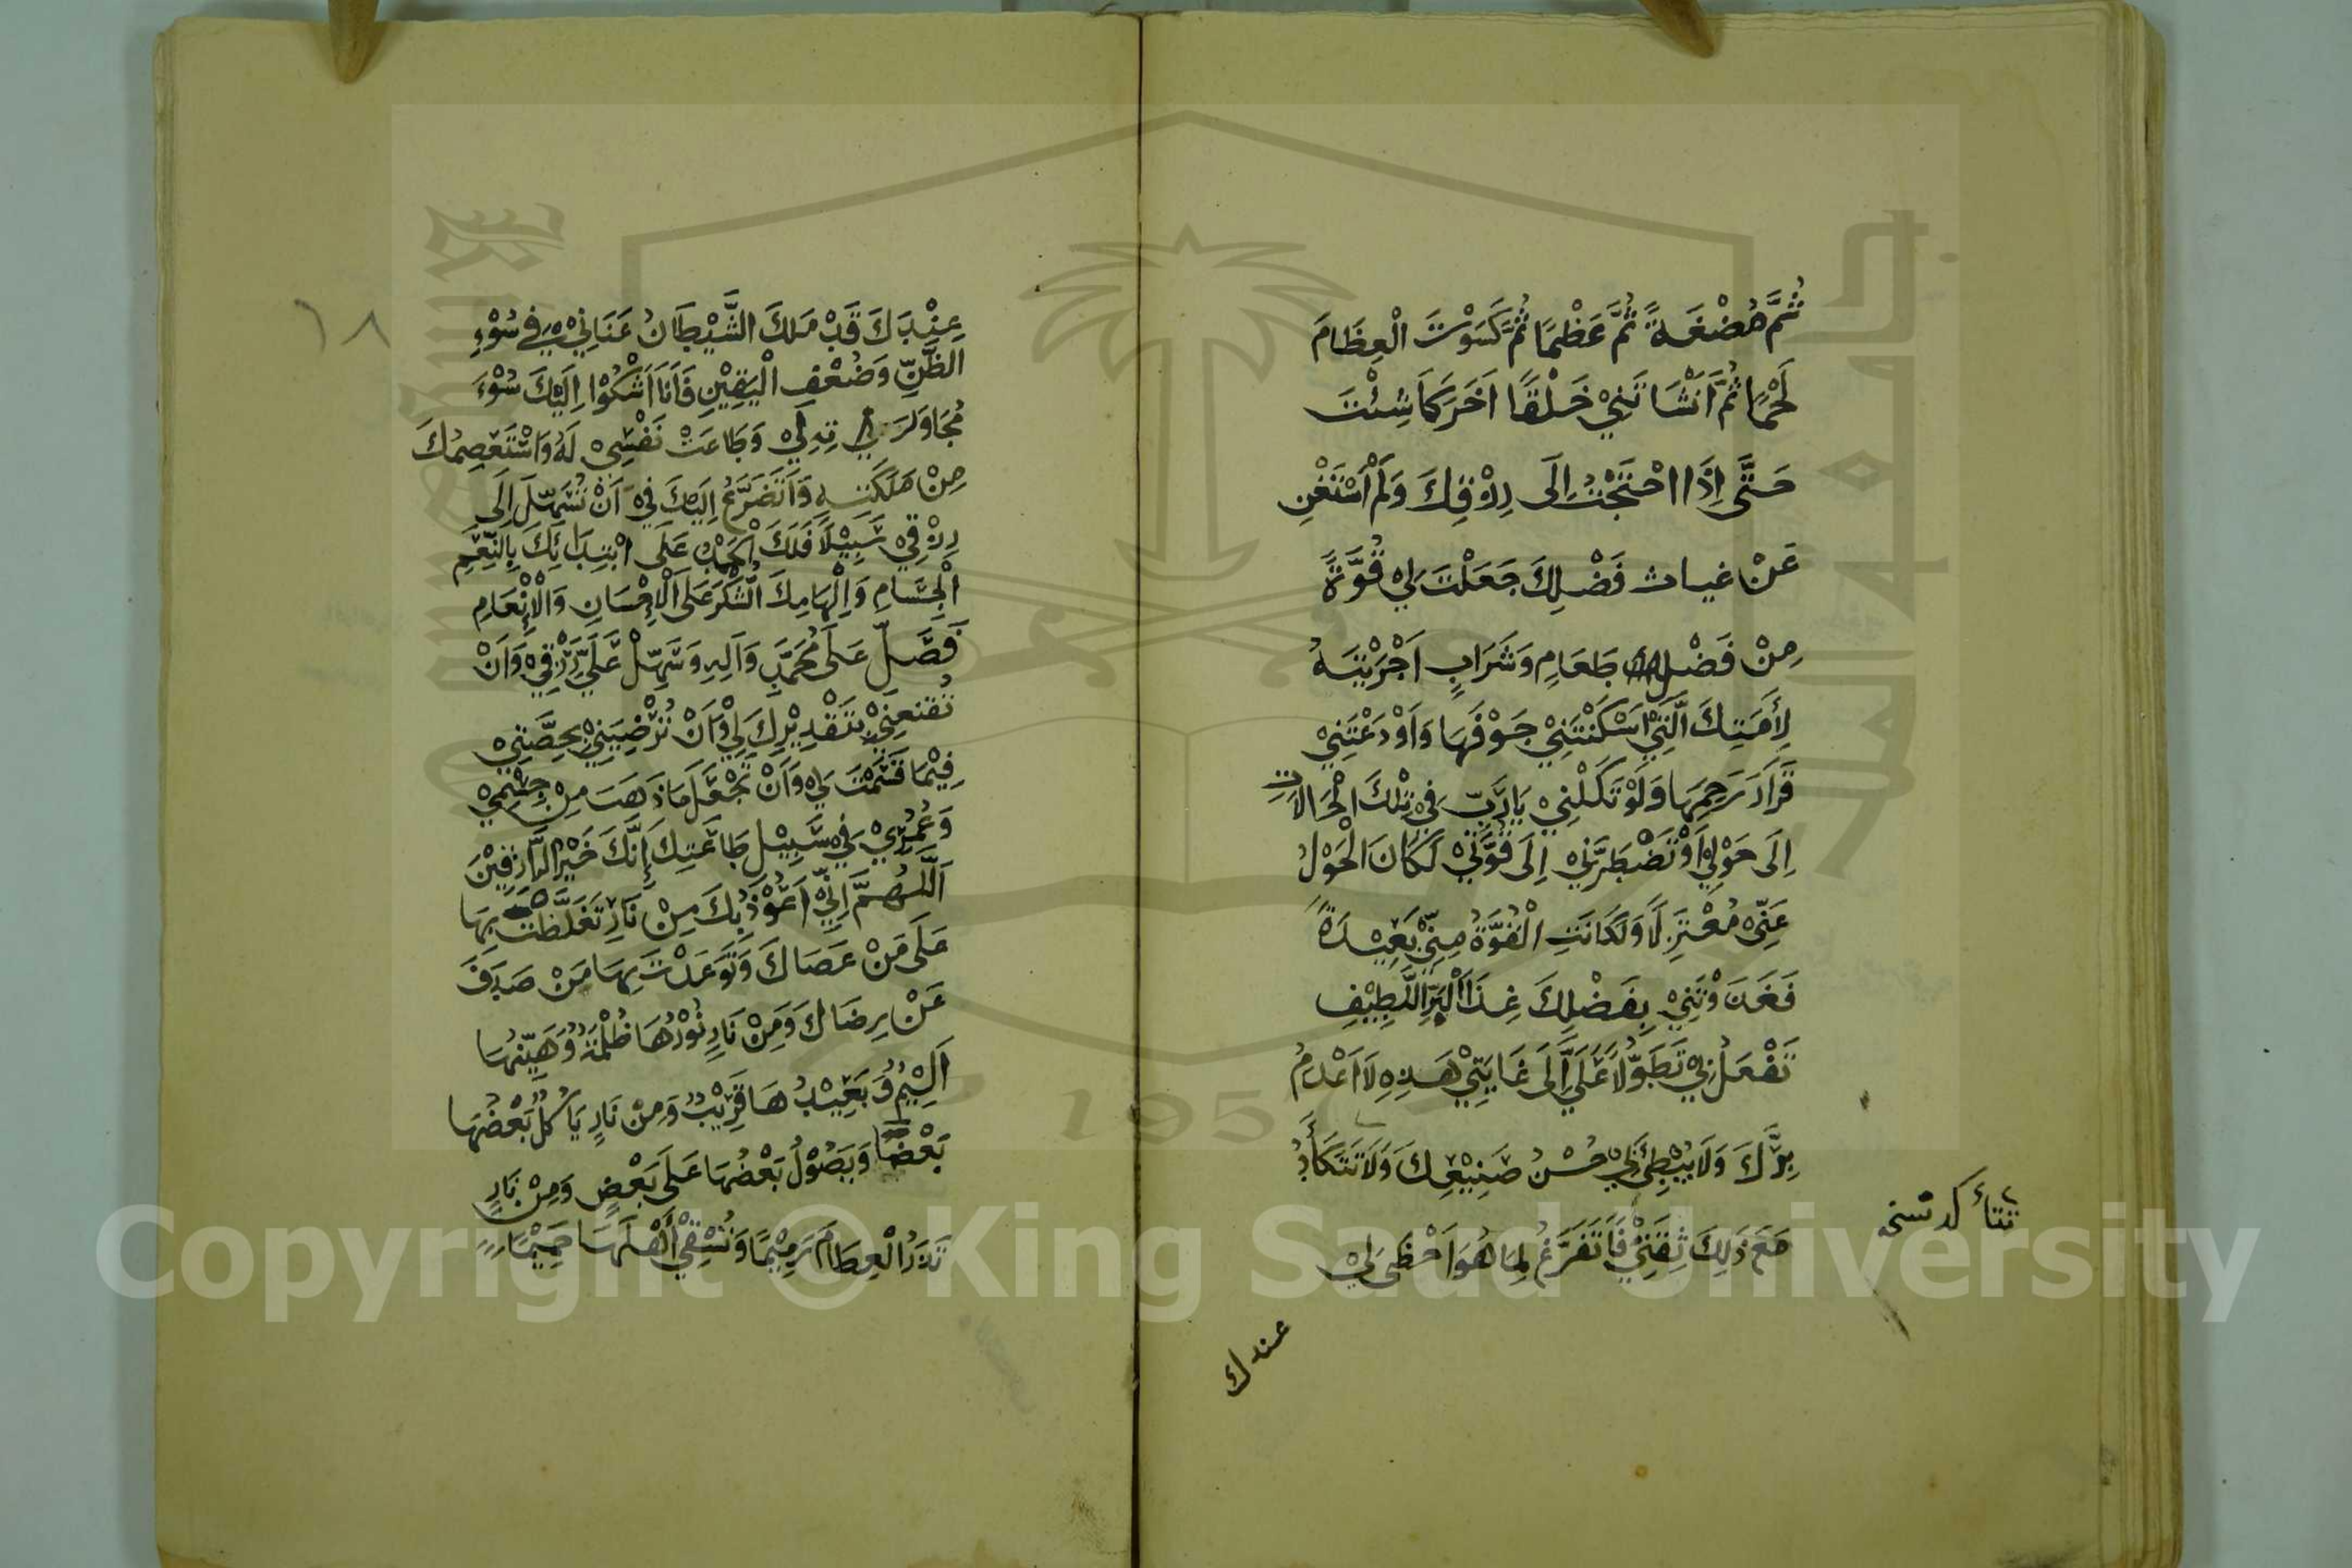 ثُمَّ مُضْغَةً ثُمَّ عَظْمًا ثُمَّ كَسَوْتَ الْعِظَامَ
لَحْمًا ثُمَّ اَنْشَاتَنِيْ خَلْقًا اَخَرَ كَمَا شِئْتَ
حَتَّى اِذَا احْتَجْتُ اِلَى رِزْقِكَ وَلَمْ اَسْتَغْنِ
عَنْ غياث فَضْلِكَ جَعَلْتَ لِيْ قُوَّةً
مِنْ فَضْلِ طَعَامٍ وَشَرَابٍ اَجْرَيْتَهُ
لِأَمَتِكَ الَّتِيْ اَسْكَنْتَنِيْ جَوْفَهَا وَاَوْدَعْتَنِيْ
قَرَارَ رَحِمِهَا وَلَوْ تَكِلْنِيْ يَارَبِّ فِيْ تِلْكَ الْحَالَاتِ
اِلَى حَوْلِيْ اَوْ تَضْطَرَّنِيْ اِلَى قُوَّتِيْ لَكَانَ الْحَوْلُ
عَنِّيْ مُعْتَزِلًا وَلَكَانَتِ الْقُوَّةُ مِنِّيْ بَعِيْدَةً
فَغَذَوْتَنِيْ بِفَضْلِكَ غِذَاالْبَرِّ اللَّطِيْفِ
تَفْعَلُ بِيْ تَطَوُّلًا عَلَيَّ اِلَى غَايَتِيْ هَذِهِ لَا اَعْدَمُ
بِرَّكَ وَلَا يُبْطِئُ بِيْ حُسْنُ صَنِيْعِكَ وَلَا تَتَكَأَّدُ
تتأكد نسخه
مَعَ ذَلِكَ ثِقَتِيْ فَاَتَفَرَّغُ لِمَا هُوَ اَحْظَى لِيْ
عندك
١٨
عِنْدَكَ قَدْ مَلَكَ الشَّيْطَانُ عَنَانِيْ فِي سُوْءِ
الظَّنِّ وَضُعْفِ الْيَقِيْنِ فَاَنَا اَشْكُوْا اِلَيْكَ سُوْءَ
مُجَاوَرَتِهِ لِيْ وَطَاعَتْ نَفْسِيْ لَهُ وَاسْتَعْصِمُكَ
مِنْ مَلَكَتِهِ وَاَتَضَرَّعُ اِلَيْكَ فِيْ اَنْ تُسَهِّلَ اِلَى
رِزْقِيْ سَبِيْلًا فَلَكَ الْحَمْدُ عَلَى ابْتِدَائِكَ بِالنِّعَمِ
الْجِسَامِ وَاِلْهَامِكَ الشُّكْرَ عَلَى الْاِحْسَانِ وَالْاِنْعَامِ
فَصَلِّ عَلَى مُحَمَّدٍ وَاَلِهِ وَسَهِّلْ عَلَيَّ رِزْقِيْ وَاَنْ
تُقَنِّعَنِيْ بِتَقْدِيْرِكَ لِيْ وَاَنْ تُرْضِيَنِيْ بِحِصَّتِيْ
فِيْمَا قَسَمْتَ لِيْ وَاَنْ تَجْعَلَ مَا ذَهَبَ مِنْ جِسْمِيْ
وَعُمُرِيْ فِيْ سَبِيْلِ طَاعَتِكَ اِنَّكَ خَيْرُ الرَّازِقِيْنَ
اَللَّهُمَّ اِنِّيْ اَعُوْذُ بِكَ مِنْ نَارٍ تَغَلَّظْتَ بِهَا
عَلَى مَنْ عَصَاكَ وَتَوَعَدْتَ بِهَا مَنْ صَدَفَ
عَنْ رِضَاكَ وَمِنْ نَارٍ نُوْرُهَا ظُلْمَةٌ وَهَيِّنُهَا
اَلِيْمٌ وَبَعِيْدُهَا قَرِيْبٌ وَمِنْ نَارٍ يَاكُلُ بَعْضُهَا
بَعْضًا وَيَصُوْلُ بَعْضُهَا عَلَى بَعْضٍ وَمِنْ نَارٍ
تَذَرُ الْعِظَامَ رَمِيْمًا وَتُسْقِيْ أَهْلَهَا حَمِيْمًا
Copyright © King Saud University
1957